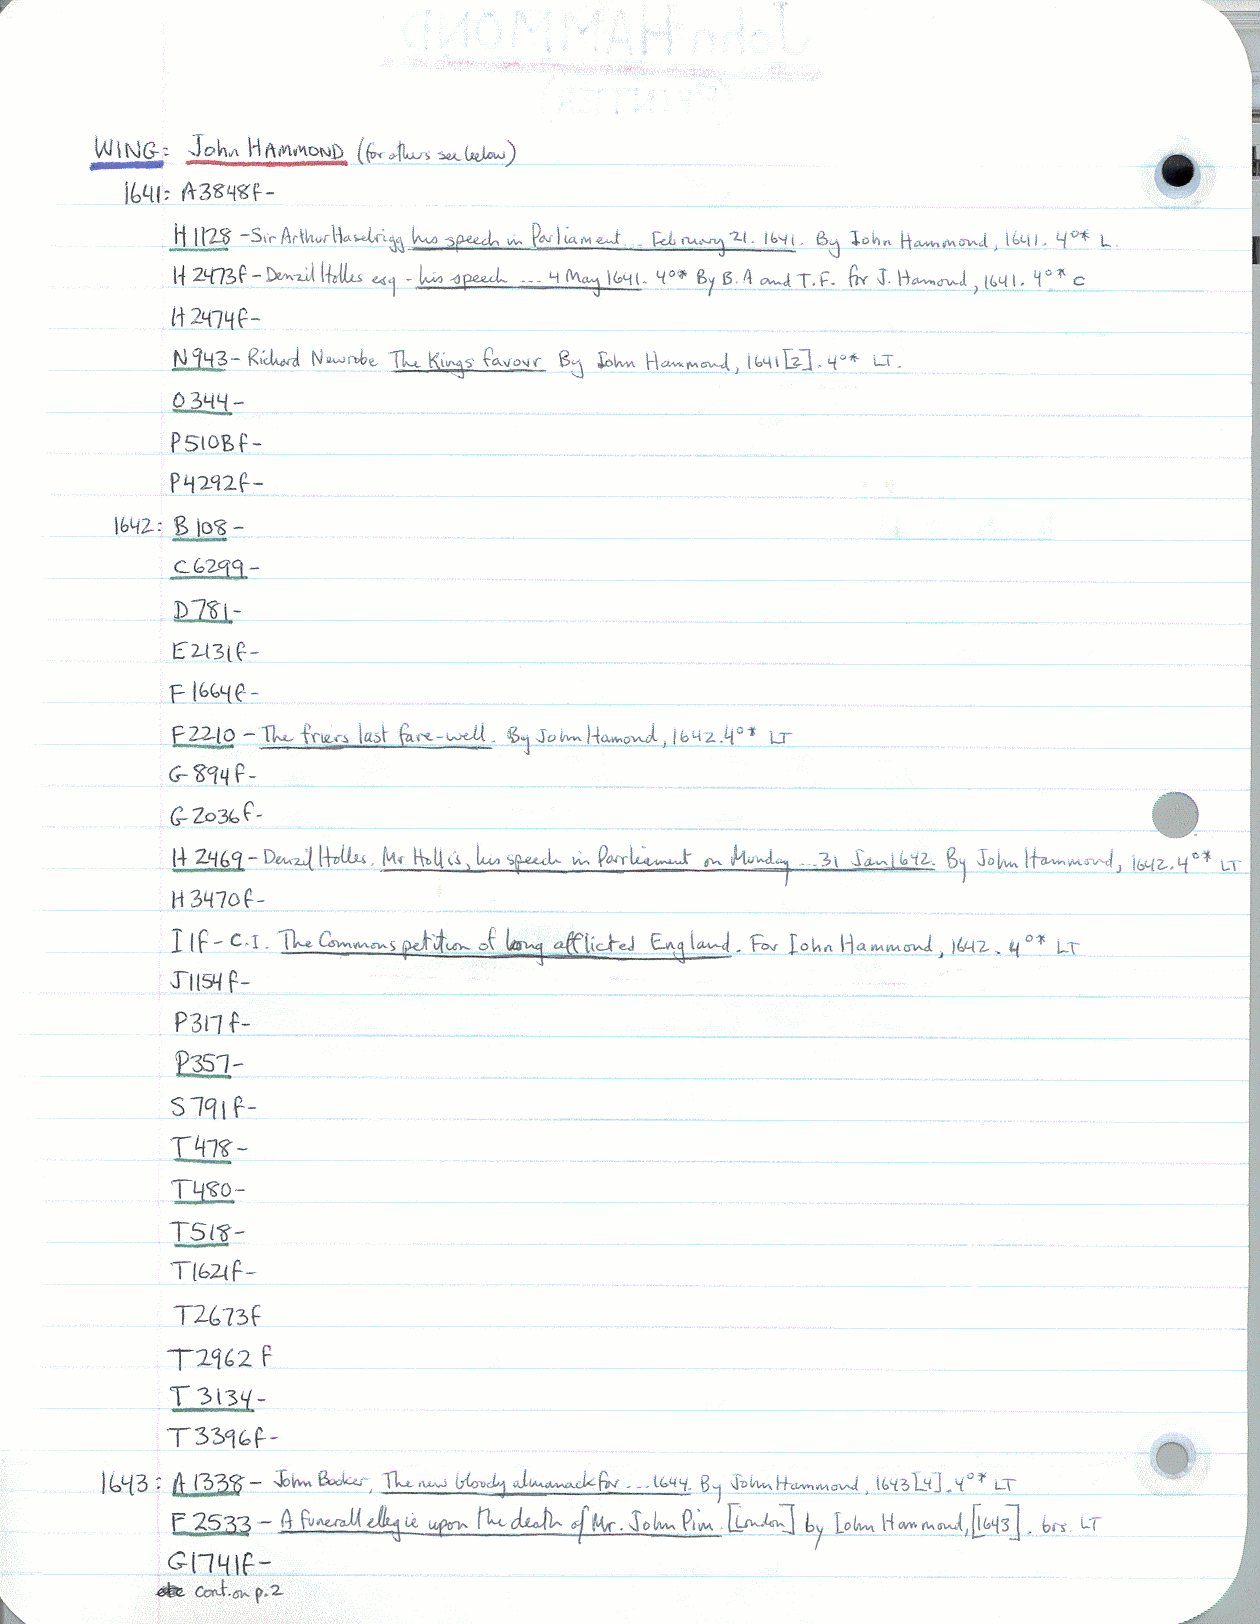 John HAMMOND
PRINTER
WING: John HAMMOND (for others see below)
1641: A3848f-
H1128 - Sir Arthur Haselrigg his speech in Parliament... February 21. 1641. By John Hammond, 1641. 4°* L.
H2473f - Denzil Holles esq - his speech ... 4 May 1641. 4°* By B.A and T.F. for J. Hamond, 1641. 4°* C
H2474f-
N943 - Richard Newrobe The Kings favour By John Hammond, 1641[2]. 4°* LT.
O344-
P510Bf-
P4292f-
1642: B108-
C6299-
D781-
E2131f-
F1664f-
F2210 - The friers last fare-well. By John Hamond, 1642. 4°* LT
G894f-
G2036f-
H2469 - Denzil Holles. Mr Hollis, his speech in Parrliament on Monday ... 31 Jan 1642. By John Hammond, 1642. 4°* LT
H3470f-
I1f - C.I. The Commons petition of long afflicted England. For Iohn Hammond, 1642. 4°* LT
J1154f-
P317f-
P357-
S791f-
T478-
T480-
T518-
T1621f-
T2673f
T2962f
T3134-
T3396f-
1643: A1338 - John Booker, The new bloody almanack for ... 1644. By John Hammond, 1643[4]. 4°* LT
F2533 - A funerall ellegie upon the death of Mr. John Pim. [London] by Iohn Hammond, [1643]. brs. LT
G1741f-
cont. on p.2